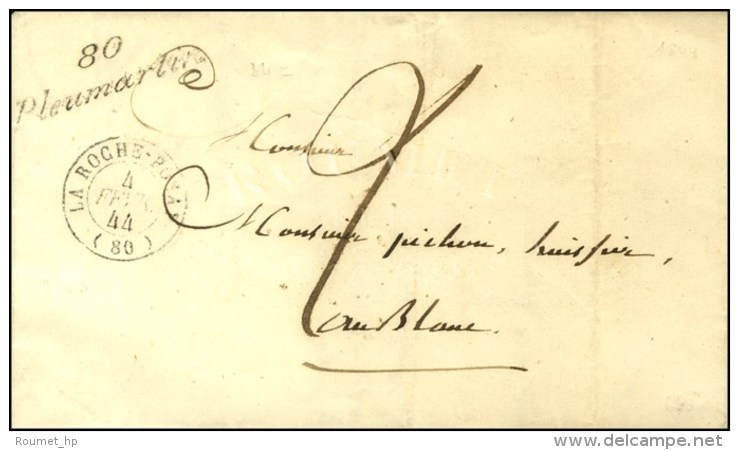 80
Pleumartin
34=
1844
LA ROCHE-POSAY
4
FEVR.
44
(80)
Monsieur
2
Monsieur pichon, huissier,
au Blanc.
Roumet_hp
©delcampe.net